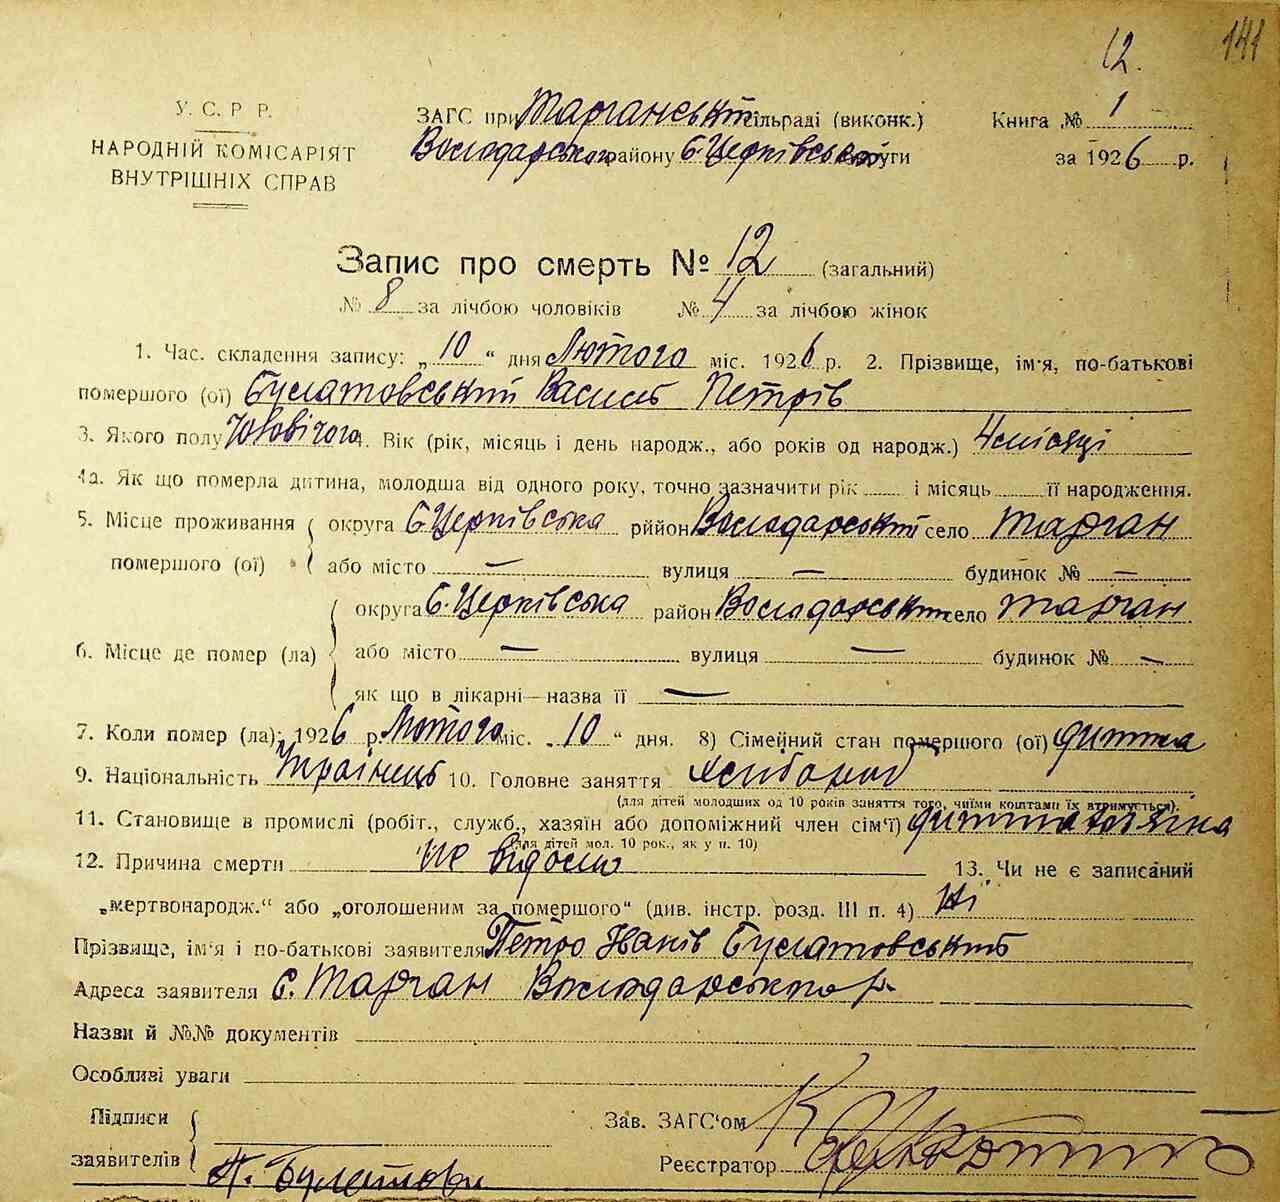 141
12.
У. С. Р. Р.
НАРОДНІЙ КОМІСАРІЯТ
ВНУТРІШНІХ СПРАВ
ЗАГС при Тарганській сільраді (виконк.)
Володарського району Б. Церківської округи
Книга № 1
за 1926 р.
Запис про смерть № 12 (загальний)
№ 8 за лічбою чоловіків № 4 за лічбою жінок
1. Час. складення запису: „ 10 “ дня Лютого міс. 1926 р. 2. Прізвище, ім'я, по-батькові
помершого (ої) Булатовський Василь Петрів
3. Якого полу Чоловічого 4. Вік (рік, місяць і день народж., або років од народж.) 4 місяці
4а. Як що померла дитина, молодша від одного року, точно зазначити рік і місяць її народження.
5. Місце проживання помершого (ої) округа Б. Церківська рййон Володарський село Тарган
або місто — вулиця — будинок № —
6. Місце де помер (ла) округа Б. Церківська район Володарський село Тарган
або місто — вулиця — будинок № —
як що в лікарні—назва її —
7. Коли помер (ла): 1926 р. Лютого міс. „ 10 “ дня. 8) Сімейний стан помершого (ої) дитина
9. Національність Українець 10. Головне заняття Хлібороб
(для дітей молодших од 10 років заняття того, чиїми коштами їх втримується).
11. Становище в промислі (робіт., служб., хазяїн або допоміжний член сім'ї) дитина хазяїна
(для дітей мол. 10 рок., як у п. 10)
12. Причина смерти Не відомо 13. Чи не є записаний
„мертвонародж.“ або „оголошеним за помершого“ (див. інстр. розд. III п. 4) Ні
Прізвище, ім'я і по-батькові заявителя Петро Іванів Булатовський
Адреса заявителя с. Тарган Володарського р.
Назви й №№ документів
Особливі уваги
Підписи заявителів
Зав. ЗАГС'ом
Реєстратор